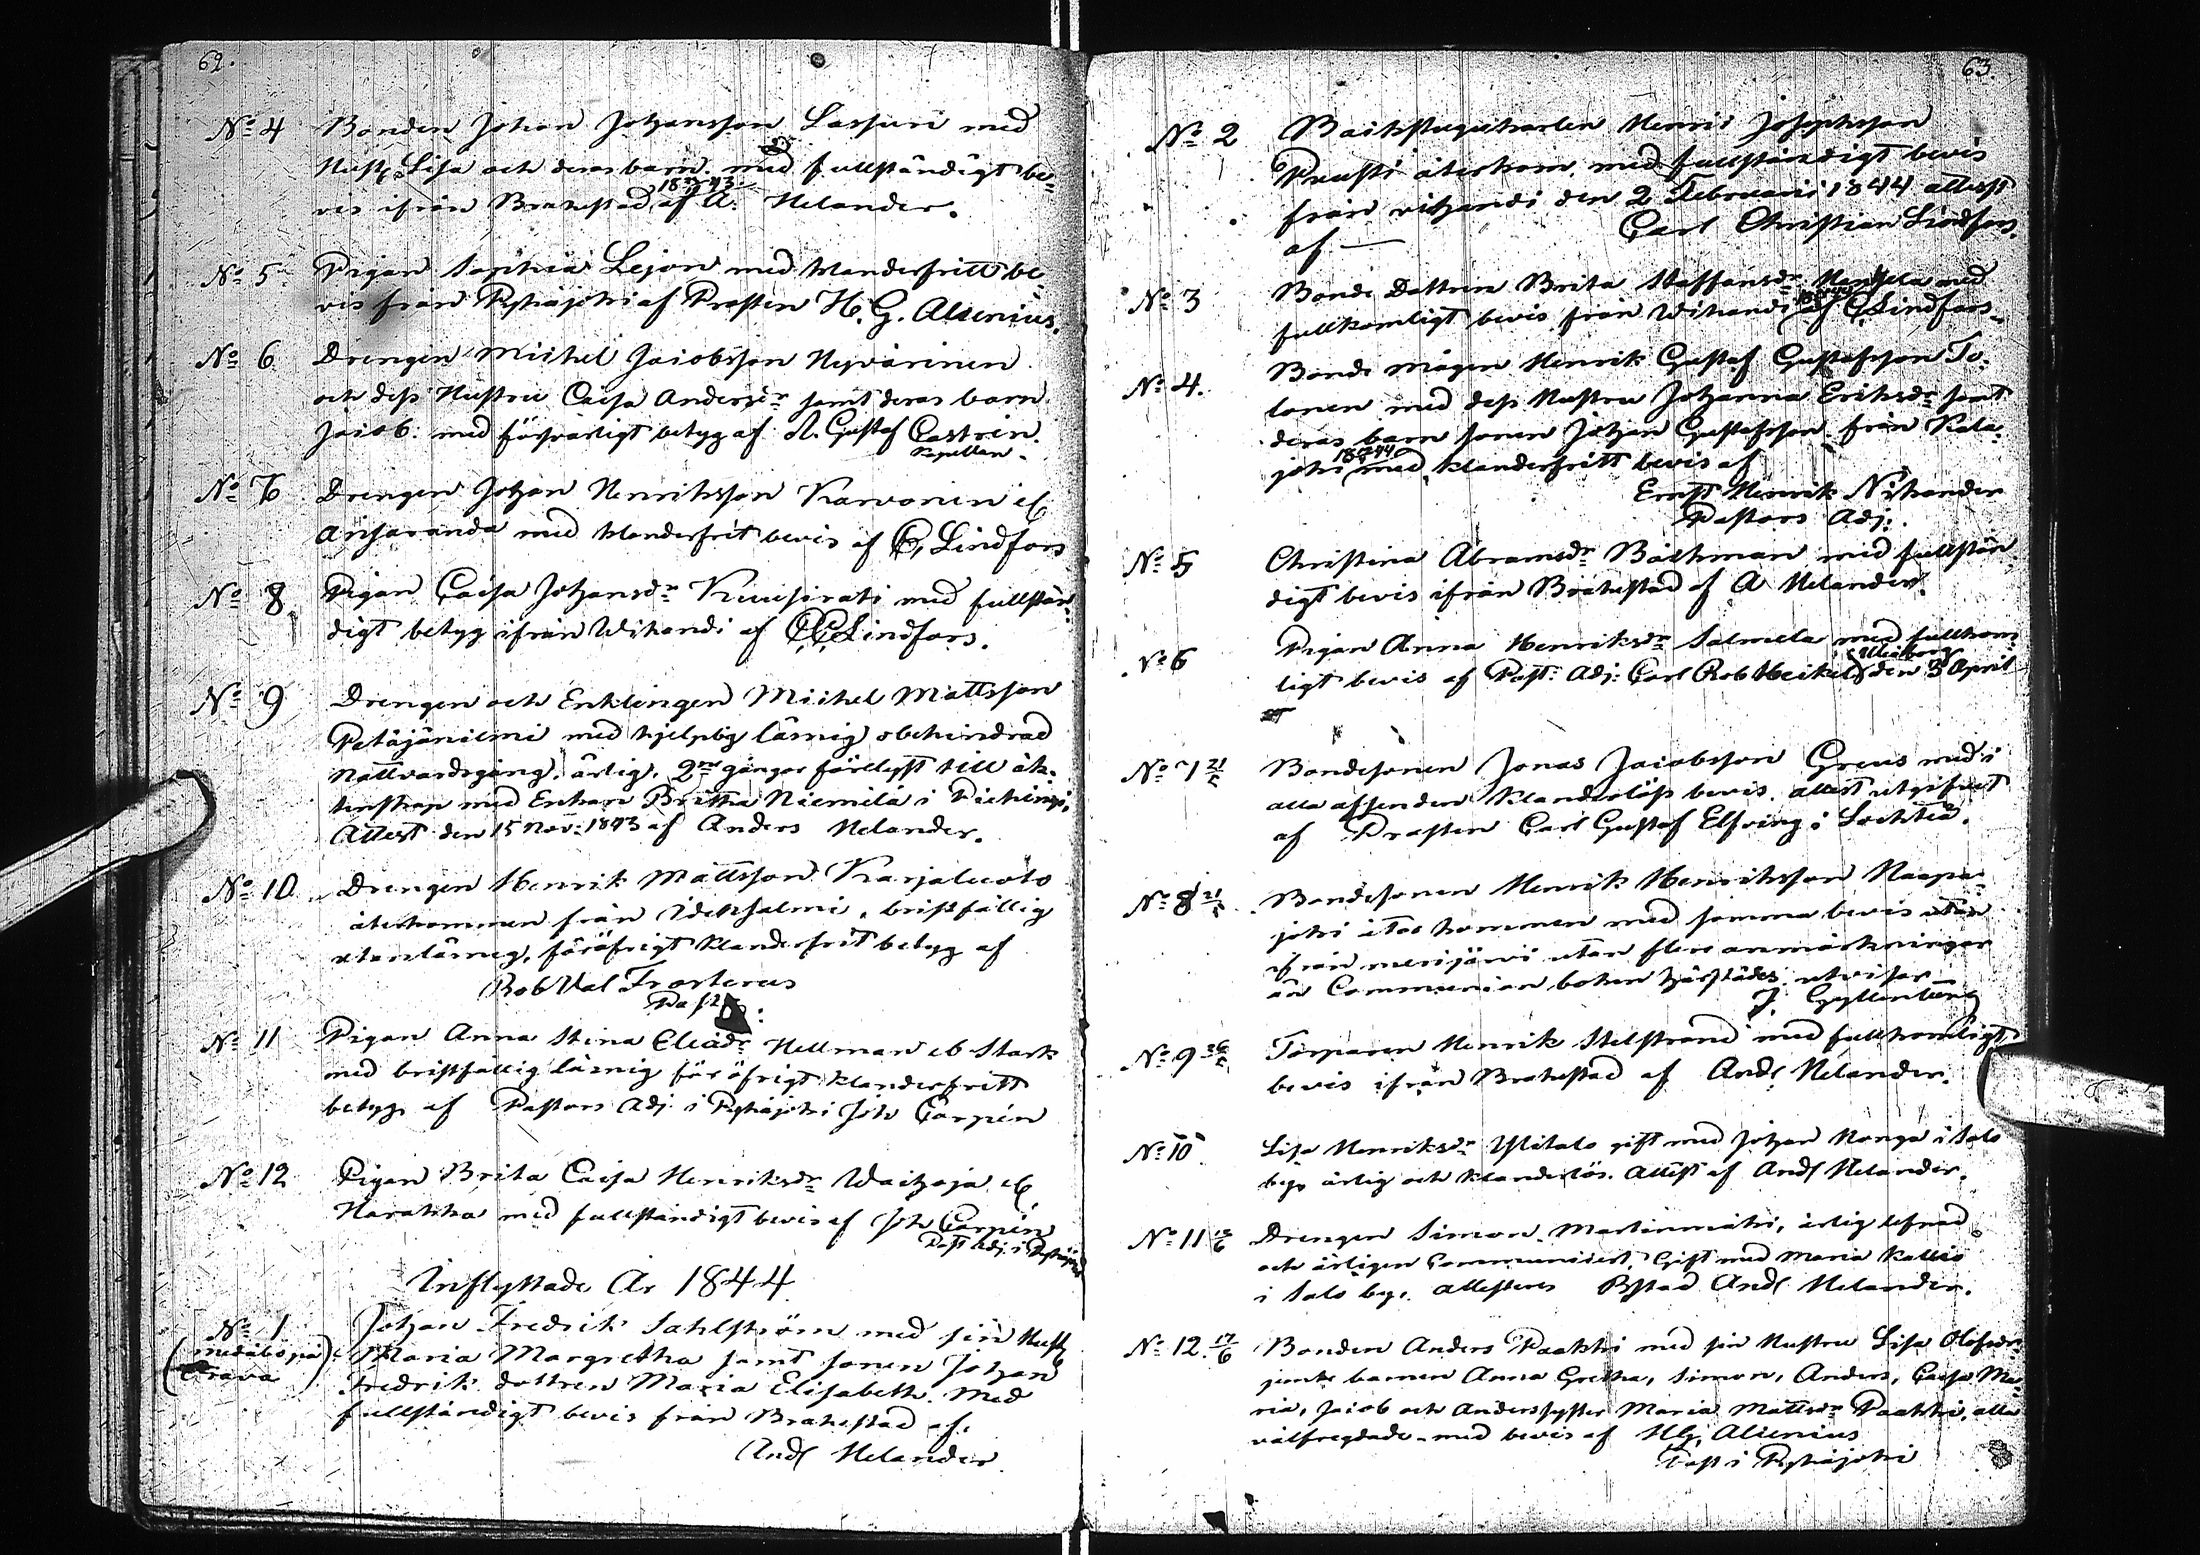 62.
No 4 Bonden Johan Johansson Lassuri med
Hust. Lisa och deras barn. med fullständigt be-
vis ifrån Brahestad af A. Helander.
No 5. Pigan Sophia Lejon med klanderfritt be-
vis från Pyhäjoki af Prosten H. G. Alcenius.
No 6 Drengen Michel Jacobsson Hyvärinen
och dess Hustru Caisa Andersdr samt deras barn
Jacob. med försvarligt betyg af A. Gustaf Castrén.
Kapellan.
No 7 Drengen Johan Henriksson Karvonen
med klanderfrit bevis af C. Lindfors
No 8 Pigan Caisa Johansdr Kuusirati med fullstän-
digt betyg ifrån Wihandi af C.C. Lindfors.
No 9 Drengen och Enklingen Michel Mattsson
Petäjäniemi med hjelplig läsning obehindrad
Nattvardsgång, ärlig, 2ne gångor förelyst till äk-
tenskap med Enkan Britha Niemilä i Piehingi,
Attest den 15 Nov: 1843 af Anders Helander.
No 10 Drengen Henrik Mattsson Karjaluoto
återkommen från Idensalmi, bristfällig
utanläsning, föröfrigt klanderfrit betyg af
Rob Val Frosterus
Past:
No 11 Pigan Anna Stina Eliædr Hellman eb Stark
med bristfällig läsning föröfrigt klanderfritt
betyg af Pastors Adj. i Pyhäjoki Joh Carpén
No 12 Pigan Brita Caisa Henriksdr Waitoja
Harakka med fullständigt bevis af Joh Carpén
Past Adj. i Pyhäjoki
Inflyttade År 1844
No 1 Johan Fredrik Sahlström med sin Hust
Maria Margretha samt sonen Johan
Fredrik dottren Maria Elisabeth. Med
fullständigt bevis från Brahestad af.
And Helander
63.
No 2 Henric Josephsson
Prusti återkom. med fullständigt bevis
från vihandi den 2 Februari 1844 attest
af — Carl Christian Lindfors.
No 3 Bonde Dottren Brita Staffansdr med
fullkomligt bevis från Wihandi af C. Lindfors.
No 4. Bonde mågen Henrik Gustaf Gustafsson To-
lonen med dess Hustru Johanna Eriksdr samt
deras barn sonen Johan Gustafsson från Kala-
joki med klanderfritt bevis af
Ernst Henrik Nikander
Pastors Adj:
No 5 Christina Abramsdr Backman med fullstän
digt bevis ifrån Brahestad af A Helander.
No 6 Pigan Anna Henriksdr Salmela med fullkom-
ligt bevis af Past: Adj: Carl Rob Heikel den 3 April
No 7 21/5 Bondesonen Jonas Jacobsson Greus med i
alla afseenden klanderlöst bevis. attest utgifvet
af Prosten Carl Gustaf Elfving i Lochteå.
No 8 21/5 Bondesonen Henrik Henriksson Haapa-
joki återkommen med samma bevis
ifrån merijärvi utan flere anmärkningar
än Communion boken härstädes utvisar
J. Gyllenberg
No 9 26/5 Torparen Henrik Stelstrand med fullkomligt
bevis ifrån Brahestad af And Helander.
No 10 Lisa Henriksdr Ylitalo gift med Johan Konga i Salo
by, ärlig och klanderlös. Attest af And Helander.
No 11 Drengen Simon Martinmäki, ärlig lefnad
och ärligen Communicert. Gift med Maria Kallio
i Salo by. attesteres Bstad And Helander.
No 12. 17/6 Bonden Anders Paakki med sin Hustru Lisa Olofsdr
jemte barnen Anna Gretha, Simon, Anders, Caisa Ma-
ria, Jacob och Anders syster Maria Mattsdr Paakki, alla
välfregdade med bevis af HG. Alcenius
Past i Pyhäjoki